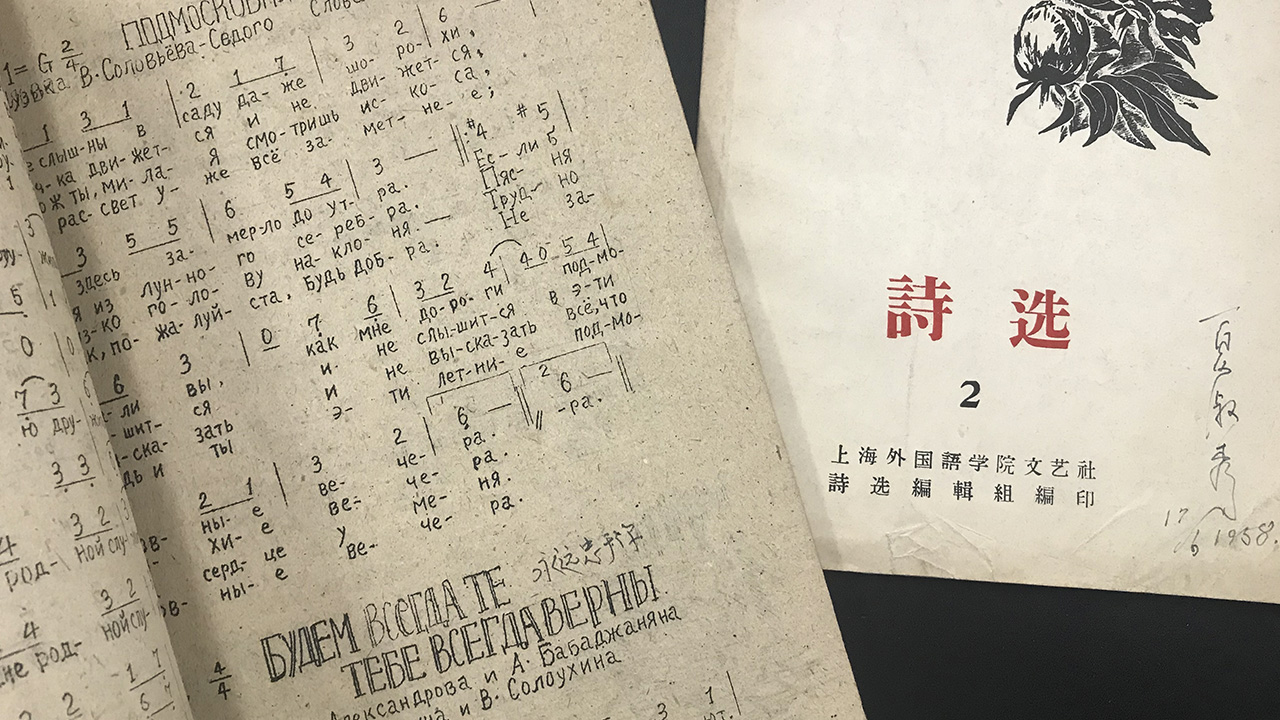 ПОДМОСКОВН
1= G 2/4
В. Соловьёва-Седого Слова
1 3 1 | 2 1 7 | 3 2 | 6
слыш-ны в саду да-же шо-ро-хи,
ка дви-жет-ся и не дви-жет-ся,
ож ты, ми-ла-я смо-тришь ис-ко-са,
рас-свет у-же всё за-мет-не-е;
3 5 5 | 6 5 4 | 3 — #4 #5
здесь за-мер-ло до ут-ра. Ес-ли б
я из лун-но-го се-реб-ра. Пяс-ня
з-ко го-ло-ву на-кло-ня. Труд-но
к, по-жа-луй-ста, будь доб-ра. Не за-
6 3 | 0 7 6 | 3 2 4 | 4 0 5 4
ли вы, как мне до-ро-ги под-мо-
шит-ся и не слы-шит-ся в э-ти
ска-зать и не вы-ска-зать всё, что
дь и ты э-ти лет-ни-е под-мо-
2 1 | 3 2 | 6 — 2 6 —
ны-е ве-че-ра. -ра.
хи-е ве-че-ра.
серд-це у ме-ня.
ны-е ве-че-ра.
永远忠于你
БУДЕМ ВСЕГДА ТЕ
ТЕБЕ ВСЕГДА ВЕРНЫ.
Александрова и А. Бабаджаняна
и В. Солоухина
4/4
3 1
ют.
3
5
0
7 3
ю дру-
3 3
4 3 2
род- ной слу-
4 3 2
не род- ной слу-
2 2 1 7
6
詩选
2
上海外国語学院文艺社
詩选編輯組編印
17/6 1958.